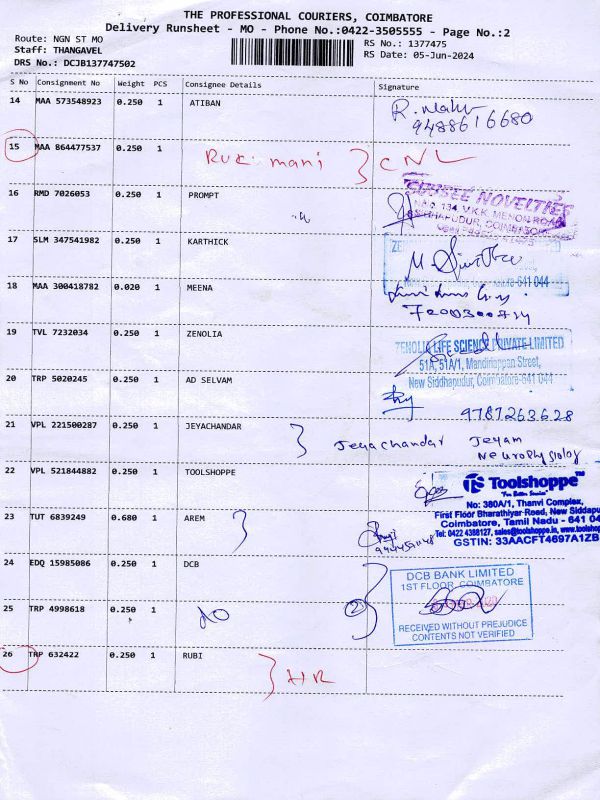 THE PROFESSIONAL COURIERS, COIMBATORE
Delivery Runsheet - MO - Phone No.:0422-3505555 - Page No.:2
Route: NGN ST MO
RS No.: 1377475
Staff: THANGAVEL
RS Date: 05-Jun-2024
DRS No.: DCJB137747502
S No Consignment No Weight PCS Consignee Details Signature
14 MAA 573548923 0.250 1 ATIBAN
9488616680
15 MAA 864477537 0.250 1 Rukumani CNL
16 RMD 7026053 0.250 1 PROMPT
NOVELTIES
134 V.K.K. MENON ROAD
17 SLM 347541982 0.250 1 KARTHICK
641 044
18 MAA 300418782 0.020 1 MEENA
19 TVL 7232034 0.250 1 ZENOLIA
ZENOLIA LIFE SCIENCE PRIVATE LIMITED
51A, 51A/1, Mandiriappan Street,
New Siddhapudur, Coimbatore-641 044
20 TRP 5020245 0.250 1 AD SELVAM
9787263628
21 VPL 221500287 0.250 1 JEYACHANDAR
Jeyachandar Jeyam
Neurophysiology
22 VPL 521844882 0.250 1 TOOLSHOPPE
Toolshoppe™
No: 380A/1, Thanvi Complex,
First Floor Bharathiyar Road, New Siddapu
Coimbatore, Tamil Nadu - 641 04
Tel: 0422 4388127, sales@toolshoppe.in, www.toolshop
GSTIN: 33AACFT4697A1ZB
23 TUT 6839249 0.680 1 AREM
24 EDQ 15985086 0.250 1 DCB
DCB BANK LIMITED
1ST FLOOR, COIMBATORE
RECEIVED WITHOUT PREJUDICE
CONTENTS NOT VERIFIED
25 TRP 4998618 0.250 1
2
26 TRP 632422 0.250 1 RUBI
HR